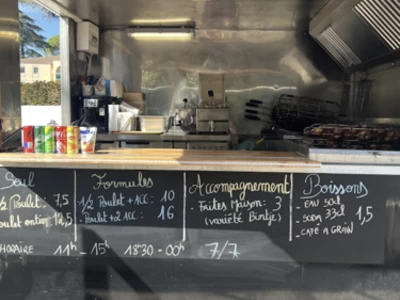 Seul
1/2 Poulet : 7,5
Poulet entier : 12,5
Formules
1/2 Poulet + 1CC : 10
- Poulet +2 1CC : 16
Accompagnement
- Frites Maison : 3
(variété Bintje)
Boissons
- EAU 50cl
- SODA 33cl 1,5
- CAFÉ A GRAIN
HORAIRE 11h - 15h 18h30 - 00h 7/7